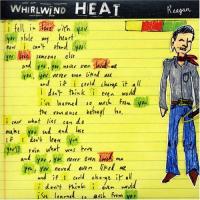 WHIRLWIND HEAT
Reagan
I fell in love with you
you stole my heart
now I can't stand you
you love someone else
and you, you never even loved me
you, you never even liked me
and if I could change it all
I don't think I even would
I've learned so much from you
the romance betrayal too.
I care what lies can do
makes you sad and lose
if I don't lose you
real from what was true
and you, you never even loved me
you, you never even liked me
and if I could change it all
I don't think I even would
I've learned so much from you